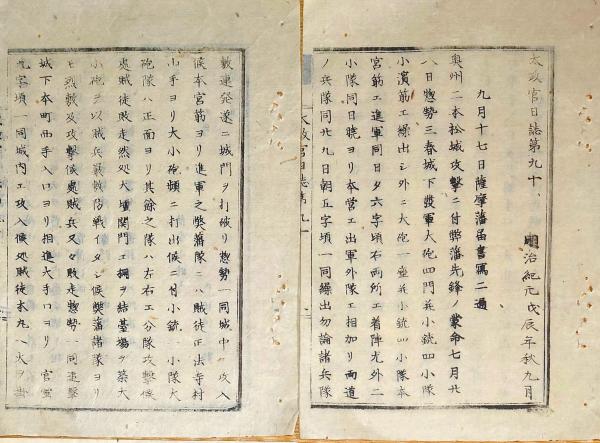 太政官日誌第九十、 明治紀元戊辰年秋九月
九月十七日薩摩藩届書寫二通
奥州二本松城攻撃ニ付弊藩先鋒ノ蒙命七月廿
八日惣勢三春城下發軍大砲四門并小銃四小隊
小濱筋エ繰出シ外ニ大砲一座并小銃四小隊本
宮筋エ進軍同日夕六字頃右両所エ着陣尤外二
小隊同日晩ヨリ本営エ出軍外隊エ相加リ両道
ノ兵隊同廾九日朝五字頃一同繰出勿論諸兵隊
太政官日誌第九十
數連發遂ニ城門ヲ打破リ惣勢一同城中ヘ攻入
候本宮筋ヨリ進軍之弊藩隊ニハ賊徒正法寺村
山手ヨリ大小砲頻ニ打出候ニ付小銃一小隊大
砲隊ハ正面ヨリ其餘之隊ハ左右エ分隊攻撃候
處賊徒敗走然処大壇関門エ柵ヲ結基場ヲ築大
小砲ヲ以賊兵嚴敷防戦イタシ候弊藩諸隊ヨリ
モ烈敷及攻撃候處賊兵又々敗走惣勢一同進撃
城下本町西手入口ヨリ相進大手口ヨリ官軍
九字頃一同城内エ攻入候処賊徒本丸ヘ火ヲ